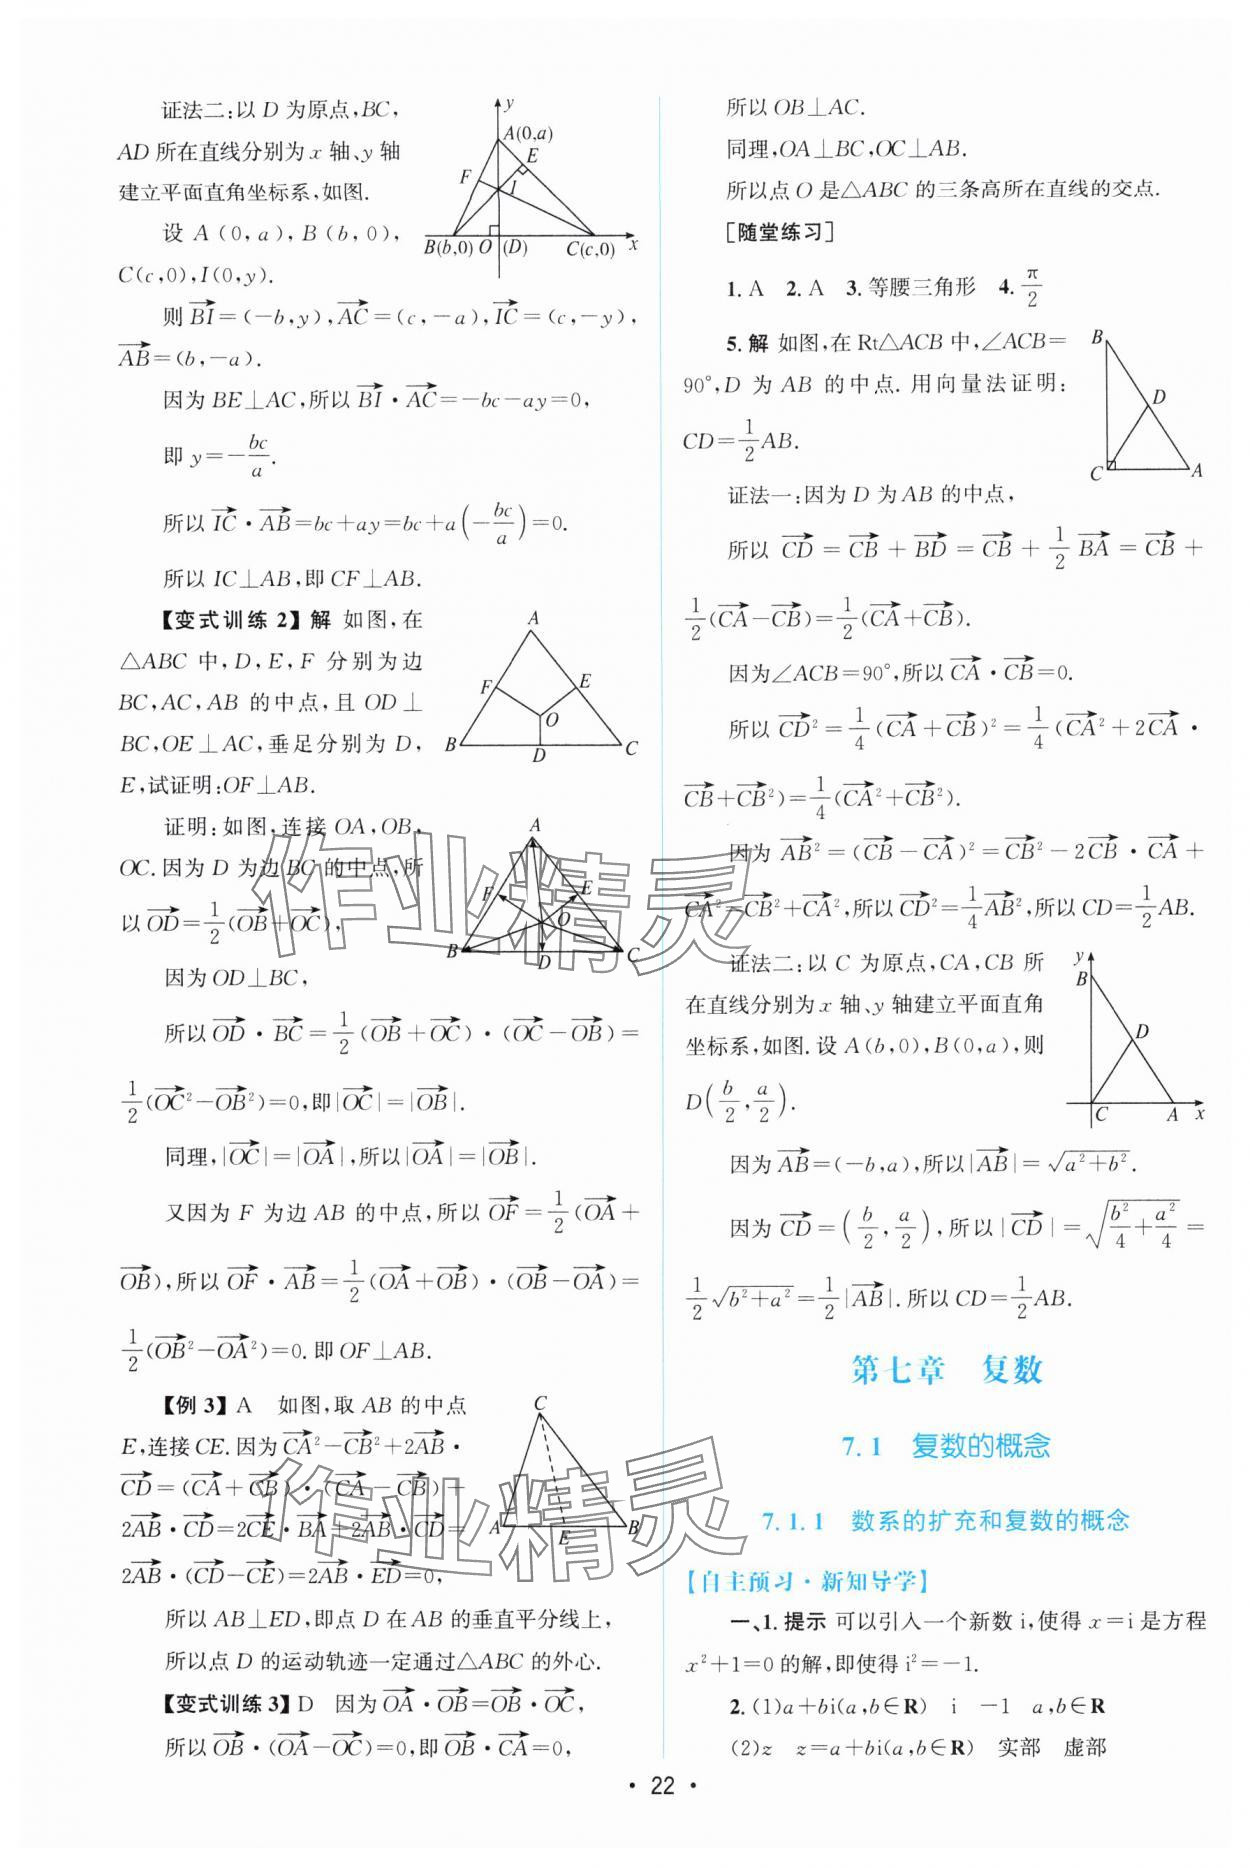 证法二:以 D 为原点,BC,
AD 所在直线分别为 x 轴、y 轴
建立平面直角坐标系,如图.
设 A(0,a),B(b,0),
C(c,0),I(0,y).
y
A(0,a)
E
F
I
B(b,0) O (D) C(c,0) x
则$\overrightarrow{BI}$=(-b,y),$\overrightarrow{AC}$=(c,-a),$\overrightarrow{IC}$=(c,-y),
$\overrightarrow{AB}$=(b,-a).
因为 BE⊥AC,所以$\overrightarrow{BI}$·$\overrightarrow{AC}$=-bc-ay=0,
即 y=-$\frac{bc}{a}$.
所以$\overrightarrow{IC}$·$\overrightarrow{AB}$=bc+ay=bc+a$\left(-\frac{bc}{a}\right)$=0.
所以 IC⊥AB,即 CF⊥AB.
【变式训练 2】解 如图,在
△ABC 中,D,E,F 分别为边
BC,AC,AB 的中点,且 OD⊥
BC,OE⊥AC,垂足分别为 D,
E,试证明:OF⊥AB.
A
F E
O
B D C
证明:如图,连接 OA,OB,
OC.因为 D 为边 BC 的中点,所
以$\overrightarrow{OD}$=$\frac{1}{2}$($\overrightarrow{OB}$+$\overrightarrow{OC}$),
A
F E
O
B D C
因为 OD⊥BC,
所以$\overrightarrow{OD}$·$\overrightarrow{BC}$=$\frac{1}{2}$($\overrightarrow{OB}$+$\overrightarrow{OC}$)·($\overrightarrow{OC}$-$\overrightarrow{OB}$)=
$\frac{1}{2}$($\overrightarrow{OC}$²-$\overrightarrow{OB}$²)=0,即|$\overrightarrow{OC}$|=|$\overrightarrow{OB}$|.
同理,|$\overrightarrow{OC}$|=|$\overrightarrow{OA}$|,所以|$\overrightarrow{OA}$|=|$\overrightarrow{OB}$|.
又因为 F 为边 AB 的中点,所以$\overrightarrow{OF}$=$\frac{1}{2}$($\overrightarrow{OA}$+
$\overrightarrow{OB}$),所以$\overrightarrow{OF}$·$\overrightarrow{AB}$=$\frac{1}{2}$($\overrightarrow{OA}$+$\overrightarrow{OB}$)·($\overrightarrow{OB}$-$\overrightarrow{OA}$)=
$\frac{1}{2}$($\overrightarrow{OB}$²-$\overrightarrow{OA}$²)=0.即 OF⊥AB.
【例 3】A 如图,取 AB 的中点
E,连接 CE.因为$\overrightarrow{CA}$²-$\overrightarrow{CB}$²+2$\overrightarrow{AB}$·
$\overrightarrow{CD}$=($\overrightarrow{CA}$+$\overrightarrow{CB}$)·($\overrightarrow{CA}$-$\overrightarrow{CB}$)+
2$\overrightarrow{AB}$·$\overrightarrow{CD}$=2$\overrightarrow{CE}$·$\overrightarrow{BA}$+2$\overrightarrow{AB}$·$\overrightarrow{CD}$=
2$\overrightarrow{AB}$·($\overrightarrow{CD}$-$\overrightarrow{CE}$)=2$\overrightarrow{AB}$·$\overrightarrow{ED}$=0,
C
A E B
所以 AB⊥ED,即点 D 在 AB 的垂直平分线上,
所以点 D 的运动轨迹一定通过△ABC 的外心.
【变式训练 3】D 因为$\overrightarrow{OA}$·$\overrightarrow{OB}$=$\overrightarrow{OB}$·$\overrightarrow{OC}$,
所以$\overrightarrow{OB}$·($\overrightarrow{OA}$-$\overrightarrow{OC}$)=0,即$\overrightarrow{OB}$·$\overrightarrow{CA}$=0,
所以 OB⊥AC.
同理,OA⊥BC,OC⊥AB.
所以点 O 是△ABC 的三条高所在直线的交点.
[随堂练习]
1. A 2. A 3. 等腰三角形 4. $\frac{π}{2}$
5. 解 如图,在 Rt△ACB 中,∠ACB=
90°,D 为 AB 的中点. 用向量法证明:
CD=$\frac{1}{2}$AB.
B
D
C A
证法一:因为 D 为 AB 的中点,
所以 $\overrightarrow{CD}$=$\overrightarrow{CB}$+$\overrightarrow{BD}$=$\overrightarrow{CB}$+$\frac{1}{2}$$\overrightarrow{BA}$=$\overrightarrow{CB}$+
$\frac{1}{2}$($\overrightarrow{CA}$-$\overrightarrow{CB}$)=$\frac{1}{2}$($\overrightarrow{CA}$+$\overrightarrow{CB}$).
因为∠ACB=90°,所以$\overrightarrow{CA}$·$\overrightarrow{CB}$=0.
所以$\overrightarrow{CD}$²=$\frac{1}{4}$($\overrightarrow{CA}$+$\overrightarrow{CB}$)²=$\frac{1}{4}$($\overrightarrow{CA}$²+2$\overrightarrow{CA}$·
$\overrightarrow{CB}$+$\overrightarrow{CB}$²)=$\frac{1}{4}$($\overrightarrow{CA}$²+$\overrightarrow{CB}$²).
因为$\overrightarrow{AB}$²=($\overrightarrow{CB}$-$\overrightarrow{CA}$)²=$\overrightarrow{CB}$²-2$\overrightarrow{CB}$·$\overrightarrow{CA}$+
$\overrightarrow{CA}$²=$\overrightarrow{CB}$²+$\overrightarrow{CA}$²,所以$\overrightarrow{CD}$²=$\frac{1}{4}$$\overrightarrow{AB}$²,所以 CD=$\frac{1}{2}$AB.
证法二:以 C 为原点,CA,CB 所
在直线分别为 x 轴、y 轴建立平面直角
坐标系,如图. 设 A(b,0),B(0,a),则
D$\left(\frac{b}{2},\frac{a}{2}\right)$.
y
B
D
C A x
因为$\overrightarrow{AB}$=(-b,a),所以|$\overrightarrow{AB}$|=$\sqrt{a^2+b^2}$.
因为$\overrightarrow{CD}$=$\left(\frac{b}{2},\frac{a}{2}\right)$,所以|$\overrightarrow{CD}$|=$\sqrt{\frac{b^2}{4}+\frac{a^2}{4}}$=
$\frac{1}{2}$$\sqrt{b^2+a^2}$=$\frac{1}{2}$|$\overrightarrow{AB}$|.所以 CD=$\frac{1}{2}$AB.
第七章 复数
7.1 复数的概念
7.1.1 数系的扩充和复数的概念
【自主预习·新知导学】
一、1. 提示 可以引入一个新数 i,使得 x=i 是方程
x²+1=0 的解,即使得 i²=-1.
2. (1)a+bi(a,b∈R) i -1 a,b∈R
(2)z z=a+bi(a,b∈R) 实部 虚部
· 22 ·
作业精灵
作业精灵